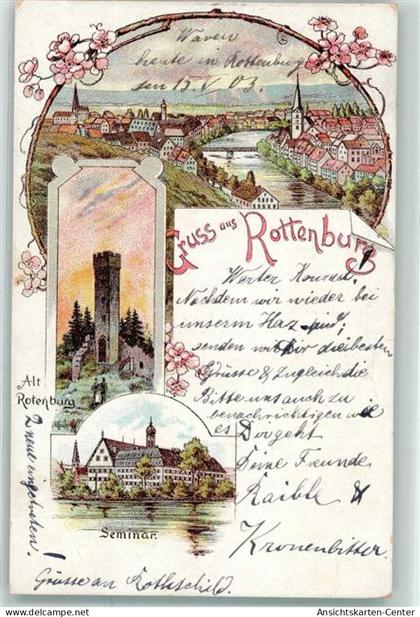 Waren
heute in Rottenburg
den 15. V. 03.
Gruss aus Rottenburg
Werter Konrad!
Nachdem wir wieder bei
unserm Haz sind,
senden wir Dir die besten
Grüsse & zugleich die
Bitte uns auch zu
benachrichtigen wie
es Dir geht
Deine Freunde
Raible &
Kronenbitter.
Alt
Rotenburg
Seminar.
2 neue eingetreten!
Grüsse an Rothschild.
Ansichtskarten-Center